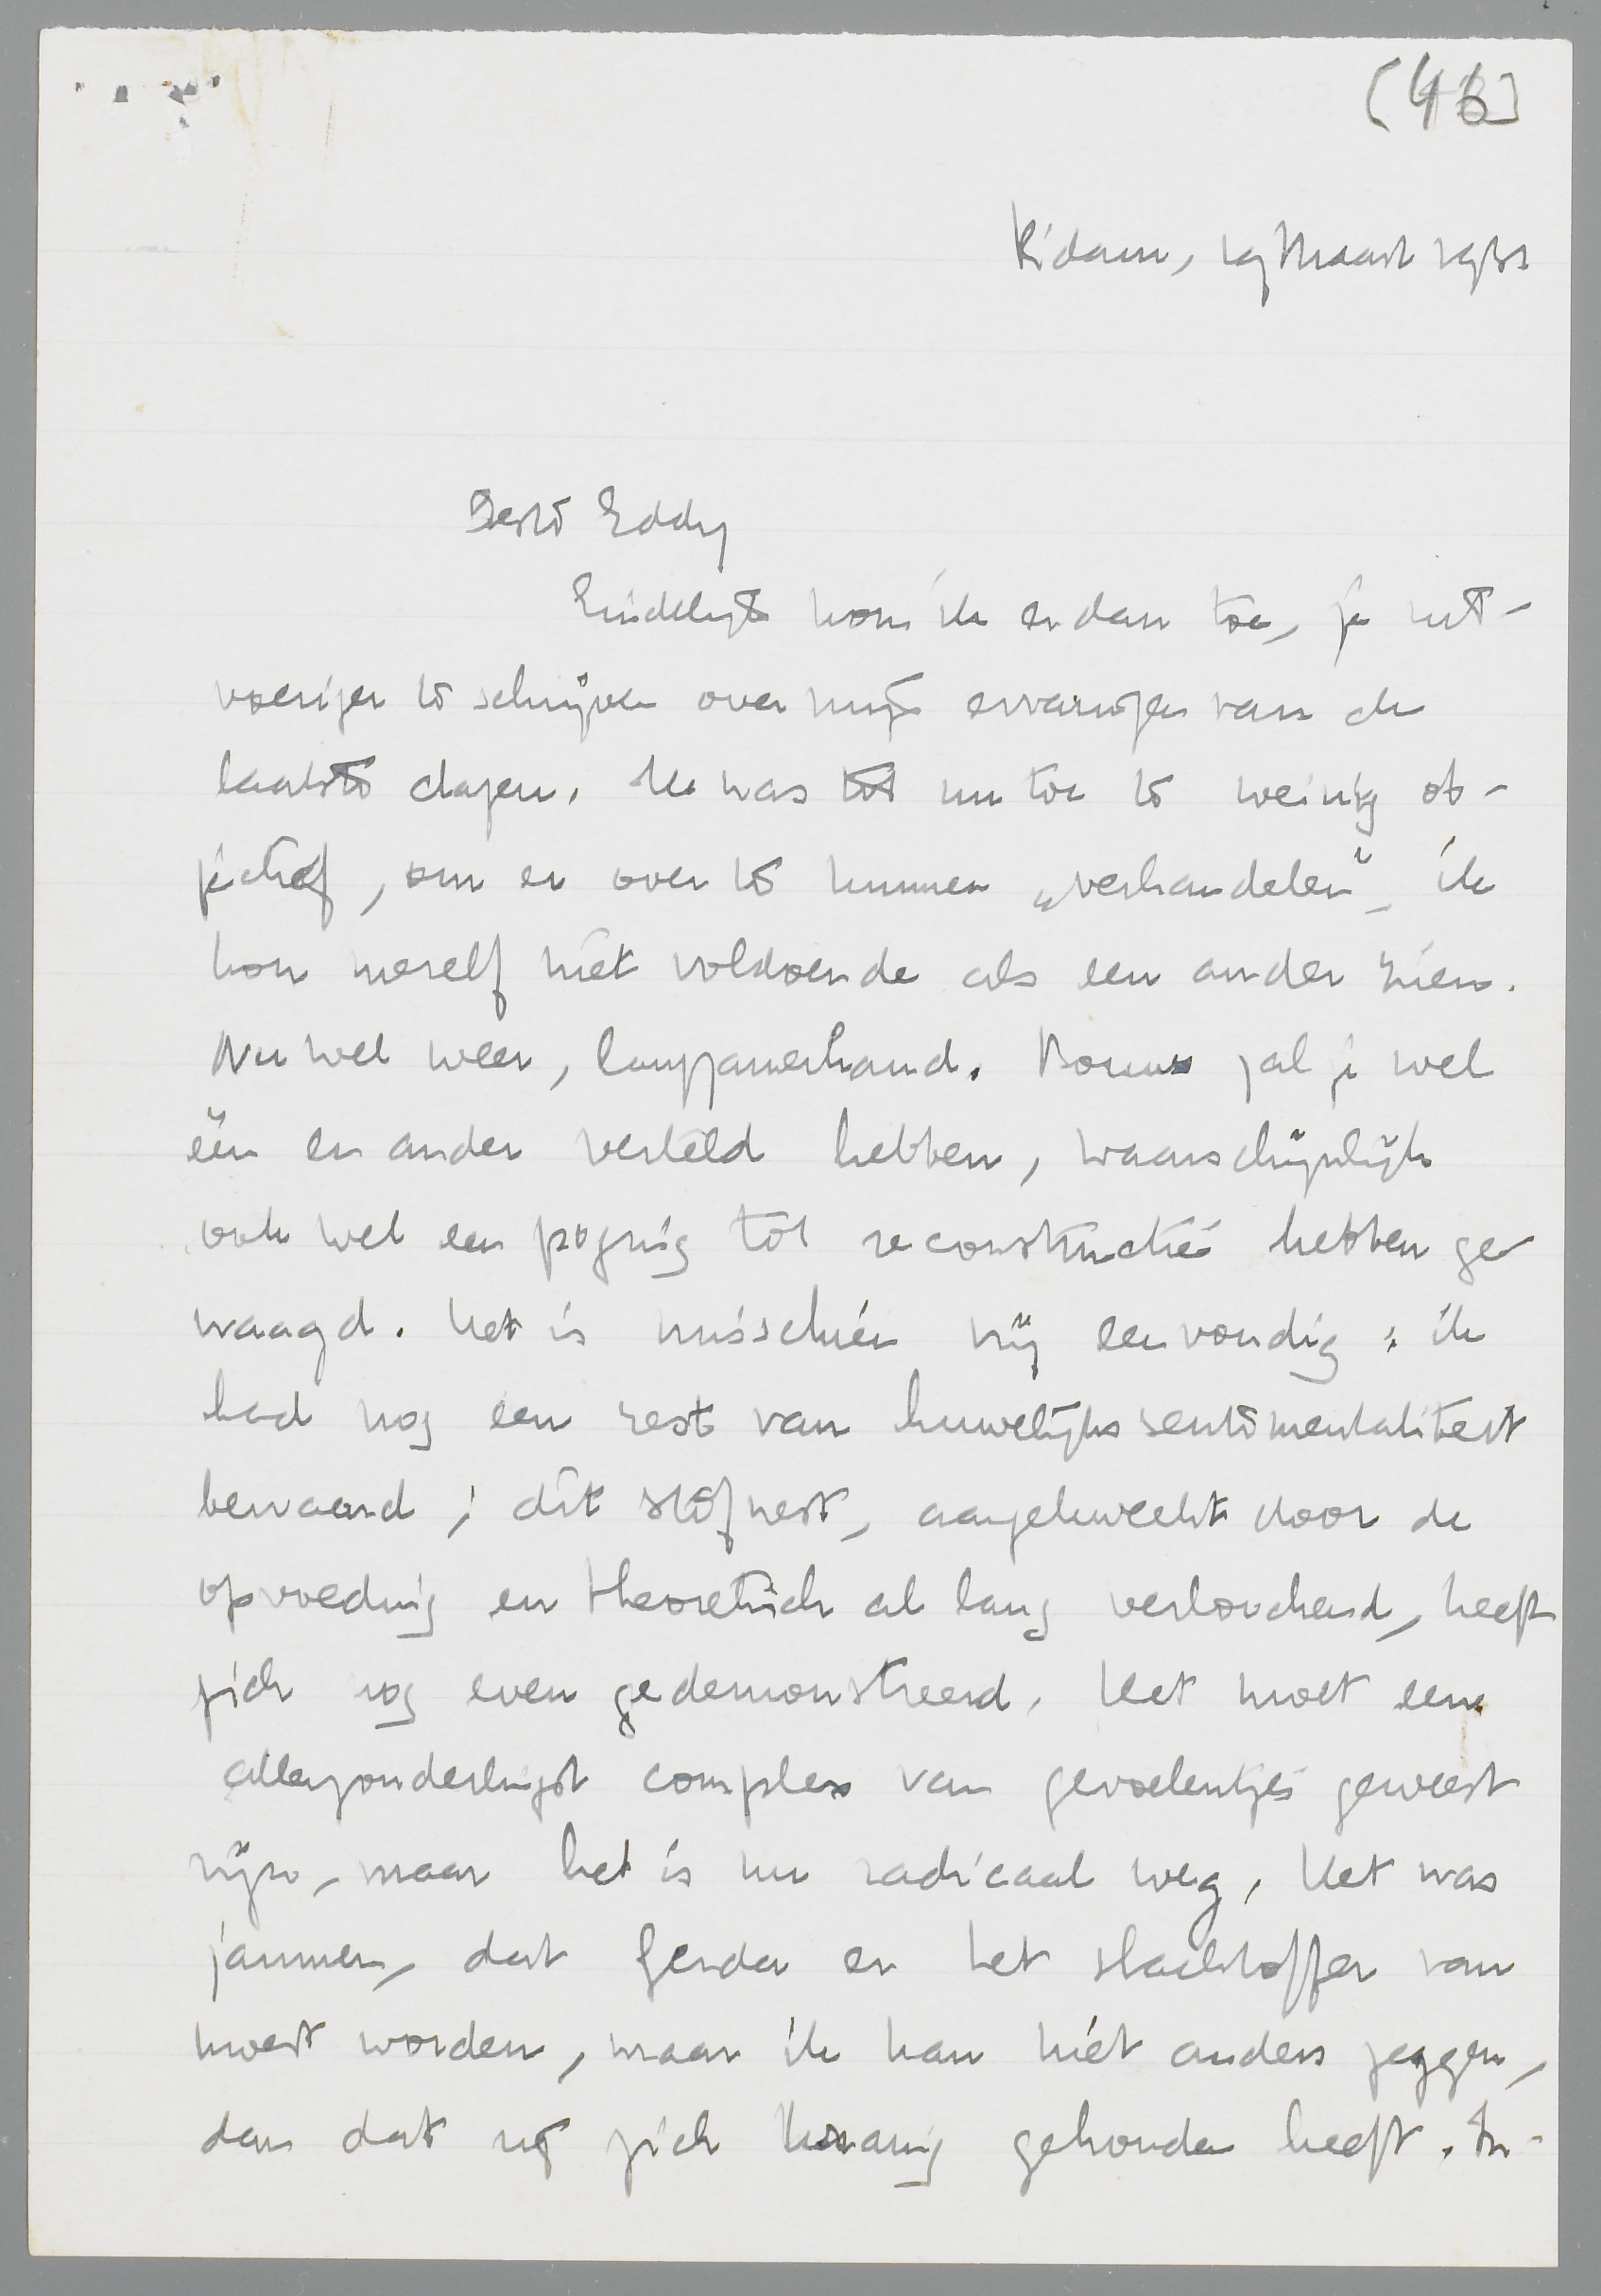 [46]
R'dam, 19 Maart 1932
Beste Eddy
Eindelijk kom ik er dan toe, je uit-
voeriger te schrijven over mijn ervaringen van de
laatste dagen. Ik was tot nu toe te weinig ob-
jectief, om er over te kunnen „verhandelen", ik
kon mezelf niet voldoende als een ander zien.
Nu wel weer, langzamerhand. Bouws zal je wel
een en ander verteld hebben, waarschijnlijk
ook wel een poging tot reconstructie hebben ge-
waagd. Het is misschien vrij eenvoudig: ik
had nog een rest van huwelijkssentimentaliteit
bewaard; dit stofnest, aangekweekt door de
opvoeding en theoretisch al lang verloochend, heeft
zich nog even gedemonstreerd. Het moet een
allerzonderlingst complex van gevoelentjes geweest
zijn, maar het is nu radicaal weg. Het was
jammer, dat Gerda er het slachtoffer van
moest worden, maar ik kan niet anders zeggen,
dan dat zij zich kranig gehouden heeft. In-